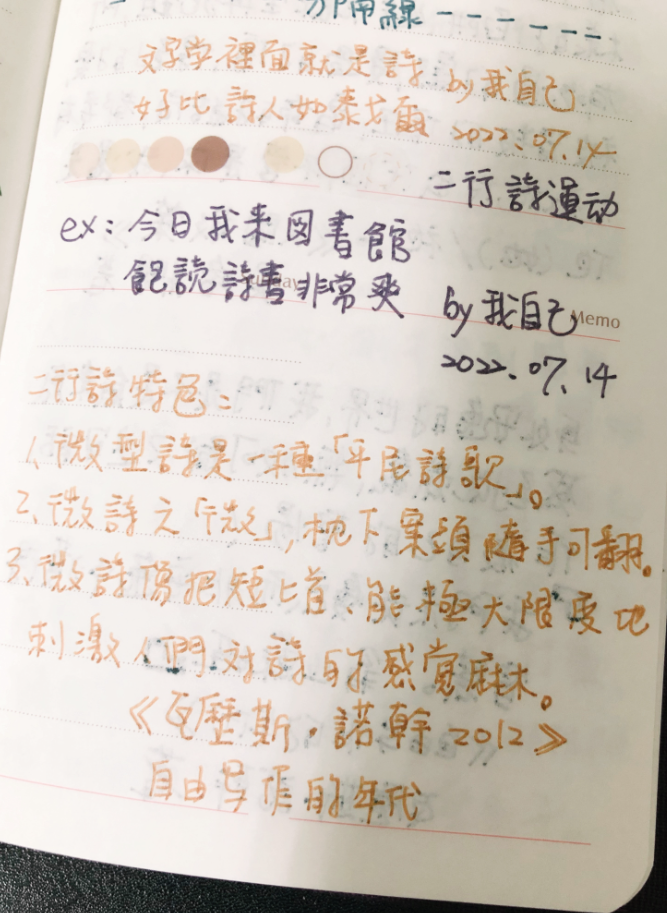 分隔線 - - - - - -
文字学裡面就是詩 by 我自己
好比詩人如泰戈爾 2022.07.14
二行詩運动
ex: 今日我来図書館
飽読詩書非常爽 by 我自己
Memo
2022.07.14
二行詩特色:
1、微型詩是一種「平民詩歌」。
2、微詩之「微」,枕下案頭隨手可翻。
3、微詩像把短匕首,能極大限度地
刺激人們对詩的感覚麻木。
《瓦歷斯·諾幹 2012》
自由写作的年代